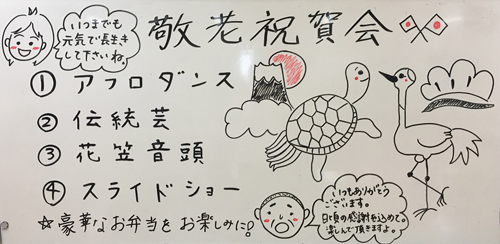 いつまでも
元気で長生き
して下さいね。
敬老祝賀会
① アフロダンス
② 伝統芸
③ 花笠音頭
④ スライドショー
☆豪華なお弁当をお楽しみに!
いつもありがとう
ございます。
日頃の感謝を込めて。
楽しんで頂きますよ。